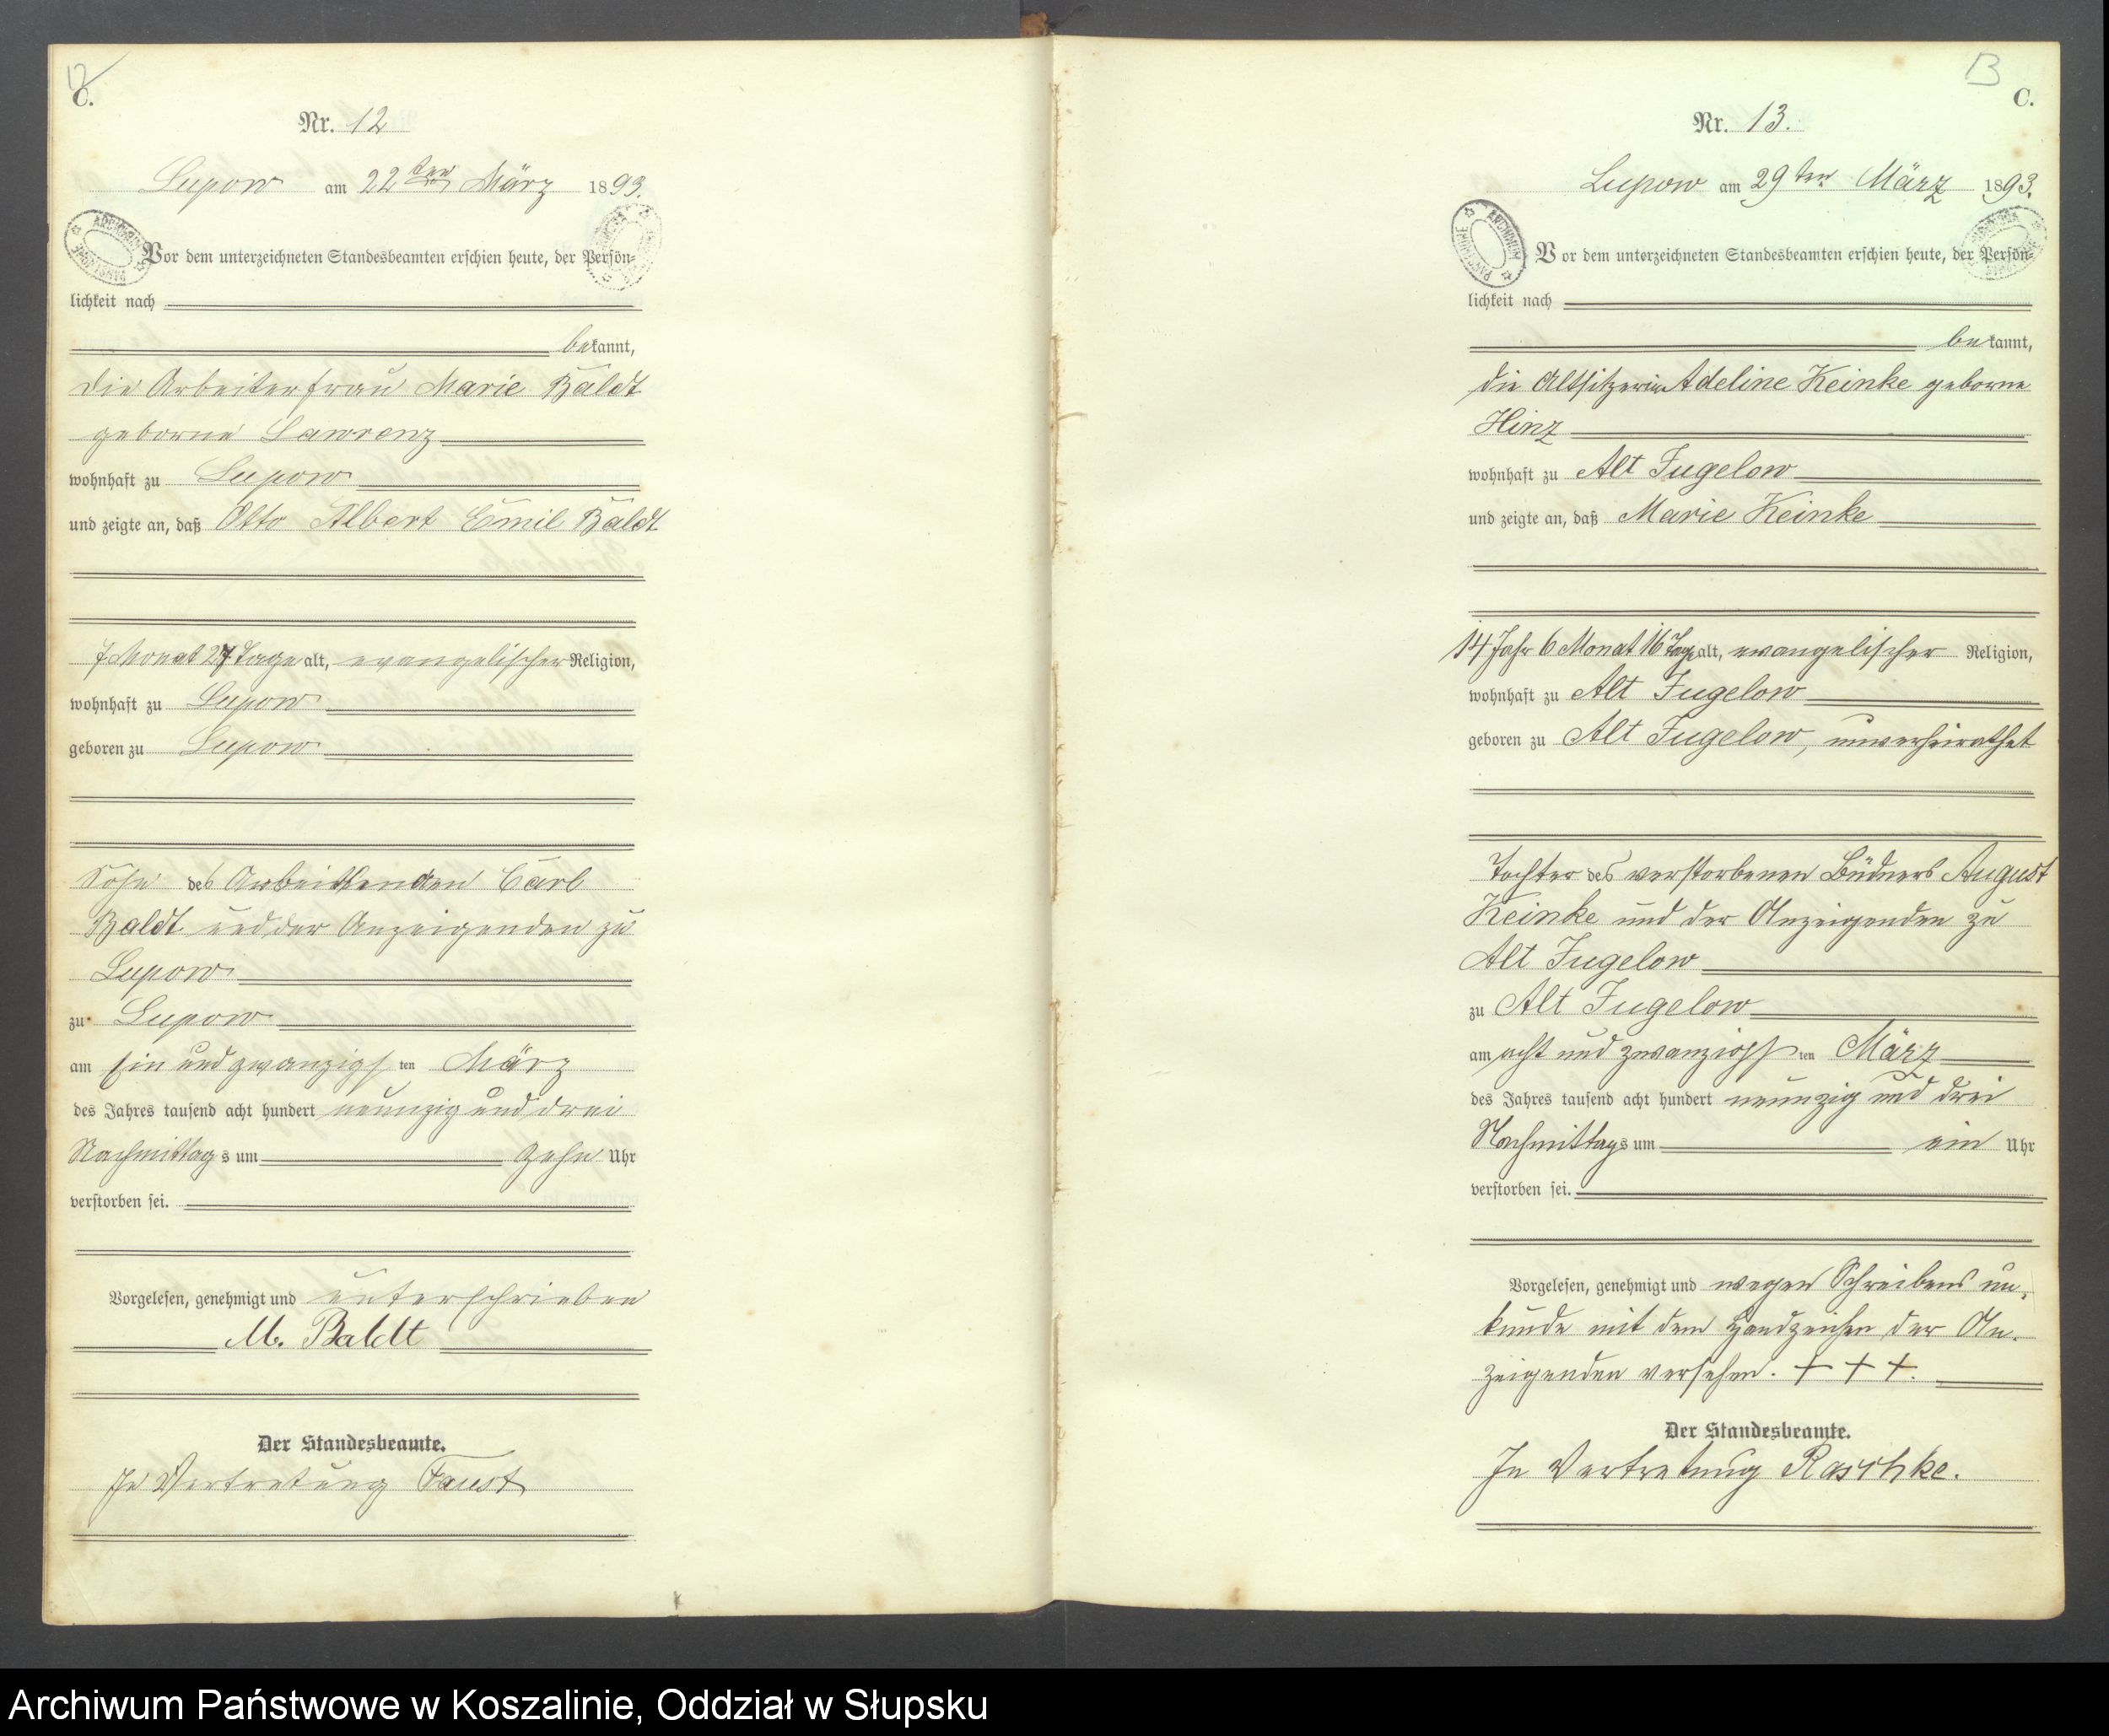 12
C.
Nr. 12
Lupow am 22ten März 1893.
ARCHIWUM PAŃSTWOWE
Vor dem unterzeichneten Standesbeamten erschien heute, der Persön-
lichkeit nach
bekannt,
die Arbeiterfrau Marie Baldt
geborne Lawrenz
wohnhaft zu Lupow
und zeigte an, daß Otto Albert Emil Baldt
7 Monat 27 Tage alt, evangelischer Religion,
wohnhaft zu Lupow
geboren zu Lupow
Sohn des Carl
Baldt und der Anzeigenden zu
Lupow
zu Lupow
am ein und zwanzigsten März
des Jahres tausend acht hundert neunzig und drei
Nachmittags um zehn Uhr
verstorben sei.
Vorgelesen, genehmigt und unterschrieben
M. Baldt
Der Standesbeamte.
In Vertretung Faust
13
C.
Nr. 13.
Lupow am 29ten März 1893.
ARCHIWUM PAŃSTWOWE
Vor dem unterzeichneten Standesbeamten erschien heute, der Persön-
lichkeit nach
bekannt,
die Altsitzerin Adeline Keinke geborne
Hinz
wohnhaft zu Alt Jugelow
und zeigte an, daß Marie Keinke
14 Jahr 6 Monat 16 Tage alt, evangelischer Religion,
wohnhaft zu Alt Jugelow
geboren zu Alt Jugelow, unverheirathet
Tochter des verstorbenen Büdners August
Keinke und der Anzeigenden zu
Alt Jugelow
zu Alt Jugelow
am acht und zwanzigsten März
des Jahres tausend acht hundert neunzig und drei
Nachmittags um ein Uhr
verstorben sei.
Vorgelesen, genehmigt und wegen Schreibens un-
kunde mit dem Handzeichen der An-
zeigenden versehen. + + +.
Der Standesbeamte.
In Vertretung Raschke.
Archiwum Państwowe w Koszalinie, Oddział w Słupsku